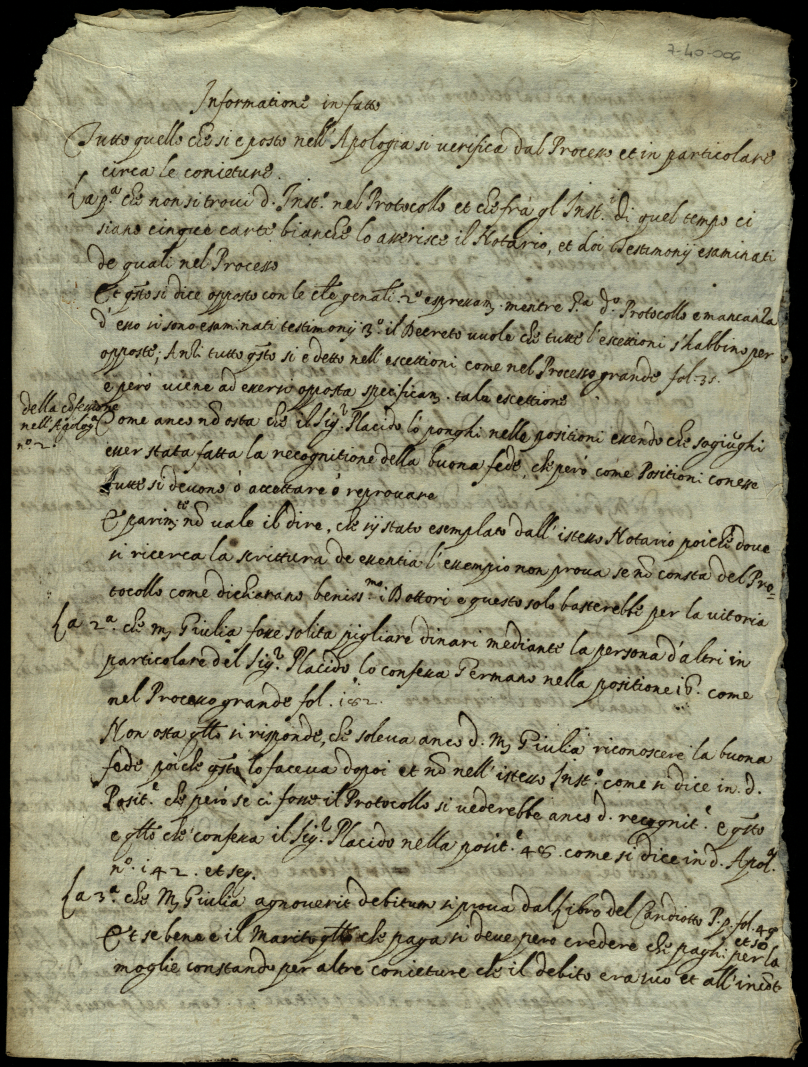 7-40-006
Informatione in fatto
Tutto quello che si e posto nell'Apologia si verifica dal Processo et in particolare
circa le conieture.
La p.ª che non si trovi d. Inst.º nel Protocollo et che frà gl'Inst.ti di quel tempo ci
siano cinque carte bianche lo asserisce il Notario, et doi Testimonij esaminati
de quali nel Processo
Et q̃sto si dice opposto con le genãli 2.º espressam. mentre s.ª d.º Protocollo e mancanza
d'esso vi sono esaminati testimonij 3.º il Decreto vuole che tutte l'escettioni s'habbino per
opposte; Anzi tutto q̃sto si e detto nell'escettioni come nel Processo grande fol. 31.
e però viene ad essersi opposta specificam. tale escettione
della
nell'Apolog.ª
n.º 2
Come anco nõ osta che il Sig.r Placido lo ponghi nelle positioni essendo che sogiũghi
esser stata fatta la recognitione della buona fede, che però come Positioni conesse
tutte si devono ò accettare ò reprovare
E parim.te nõ vale il dire, che sij stato esemplato dall'istesso Notario poiche dove
si ricerca la scrittura de essentia l'essempio non prova se nõ consta del Pro=
tocollo come dichiarano beniss.mo i Dottori e questo solo basterebbe per la vitoria
La 2.ª che M.ª Giulia fosse solita pigliare dinari mediante la persona d'altri in
particolare del Sig.r Placido lo confessa Permano nella positione 16. come
nel Processo grande fol. 182.
Non osta q̃llo si risponde, che soleva anco d. M.ª Giulia riconoscere la buona
fede poiche q̃sto lo faceva dopoi et nõ nell'istesso Inst.º come si dice in d.
Posit.e che però se ci fosse il Protocollo si vederebbe anco d. recognit.e e q̃sto
e q̃llo che confessa il Sig.r Placido nella posit.e 48. come si dice in d. Apol.ª
n.º 142. et seq.
La 3.ª che M.ª Giulia agnoverit debitum si prova dal Libro del Candiotto P.p. fol. 49
et 50
Et se bene e il Marito q̃llo che paga si deve pero credere che paghi per la
moglie constando per altre conieture che il debito era suo et all'incõt